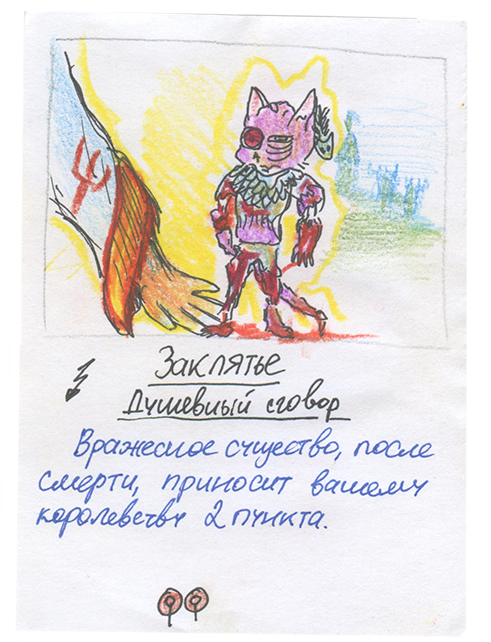 Заклятье
Душевный сговор
Вражесное существо, после
смерти, приносит вашему
королевству 2 пункта.